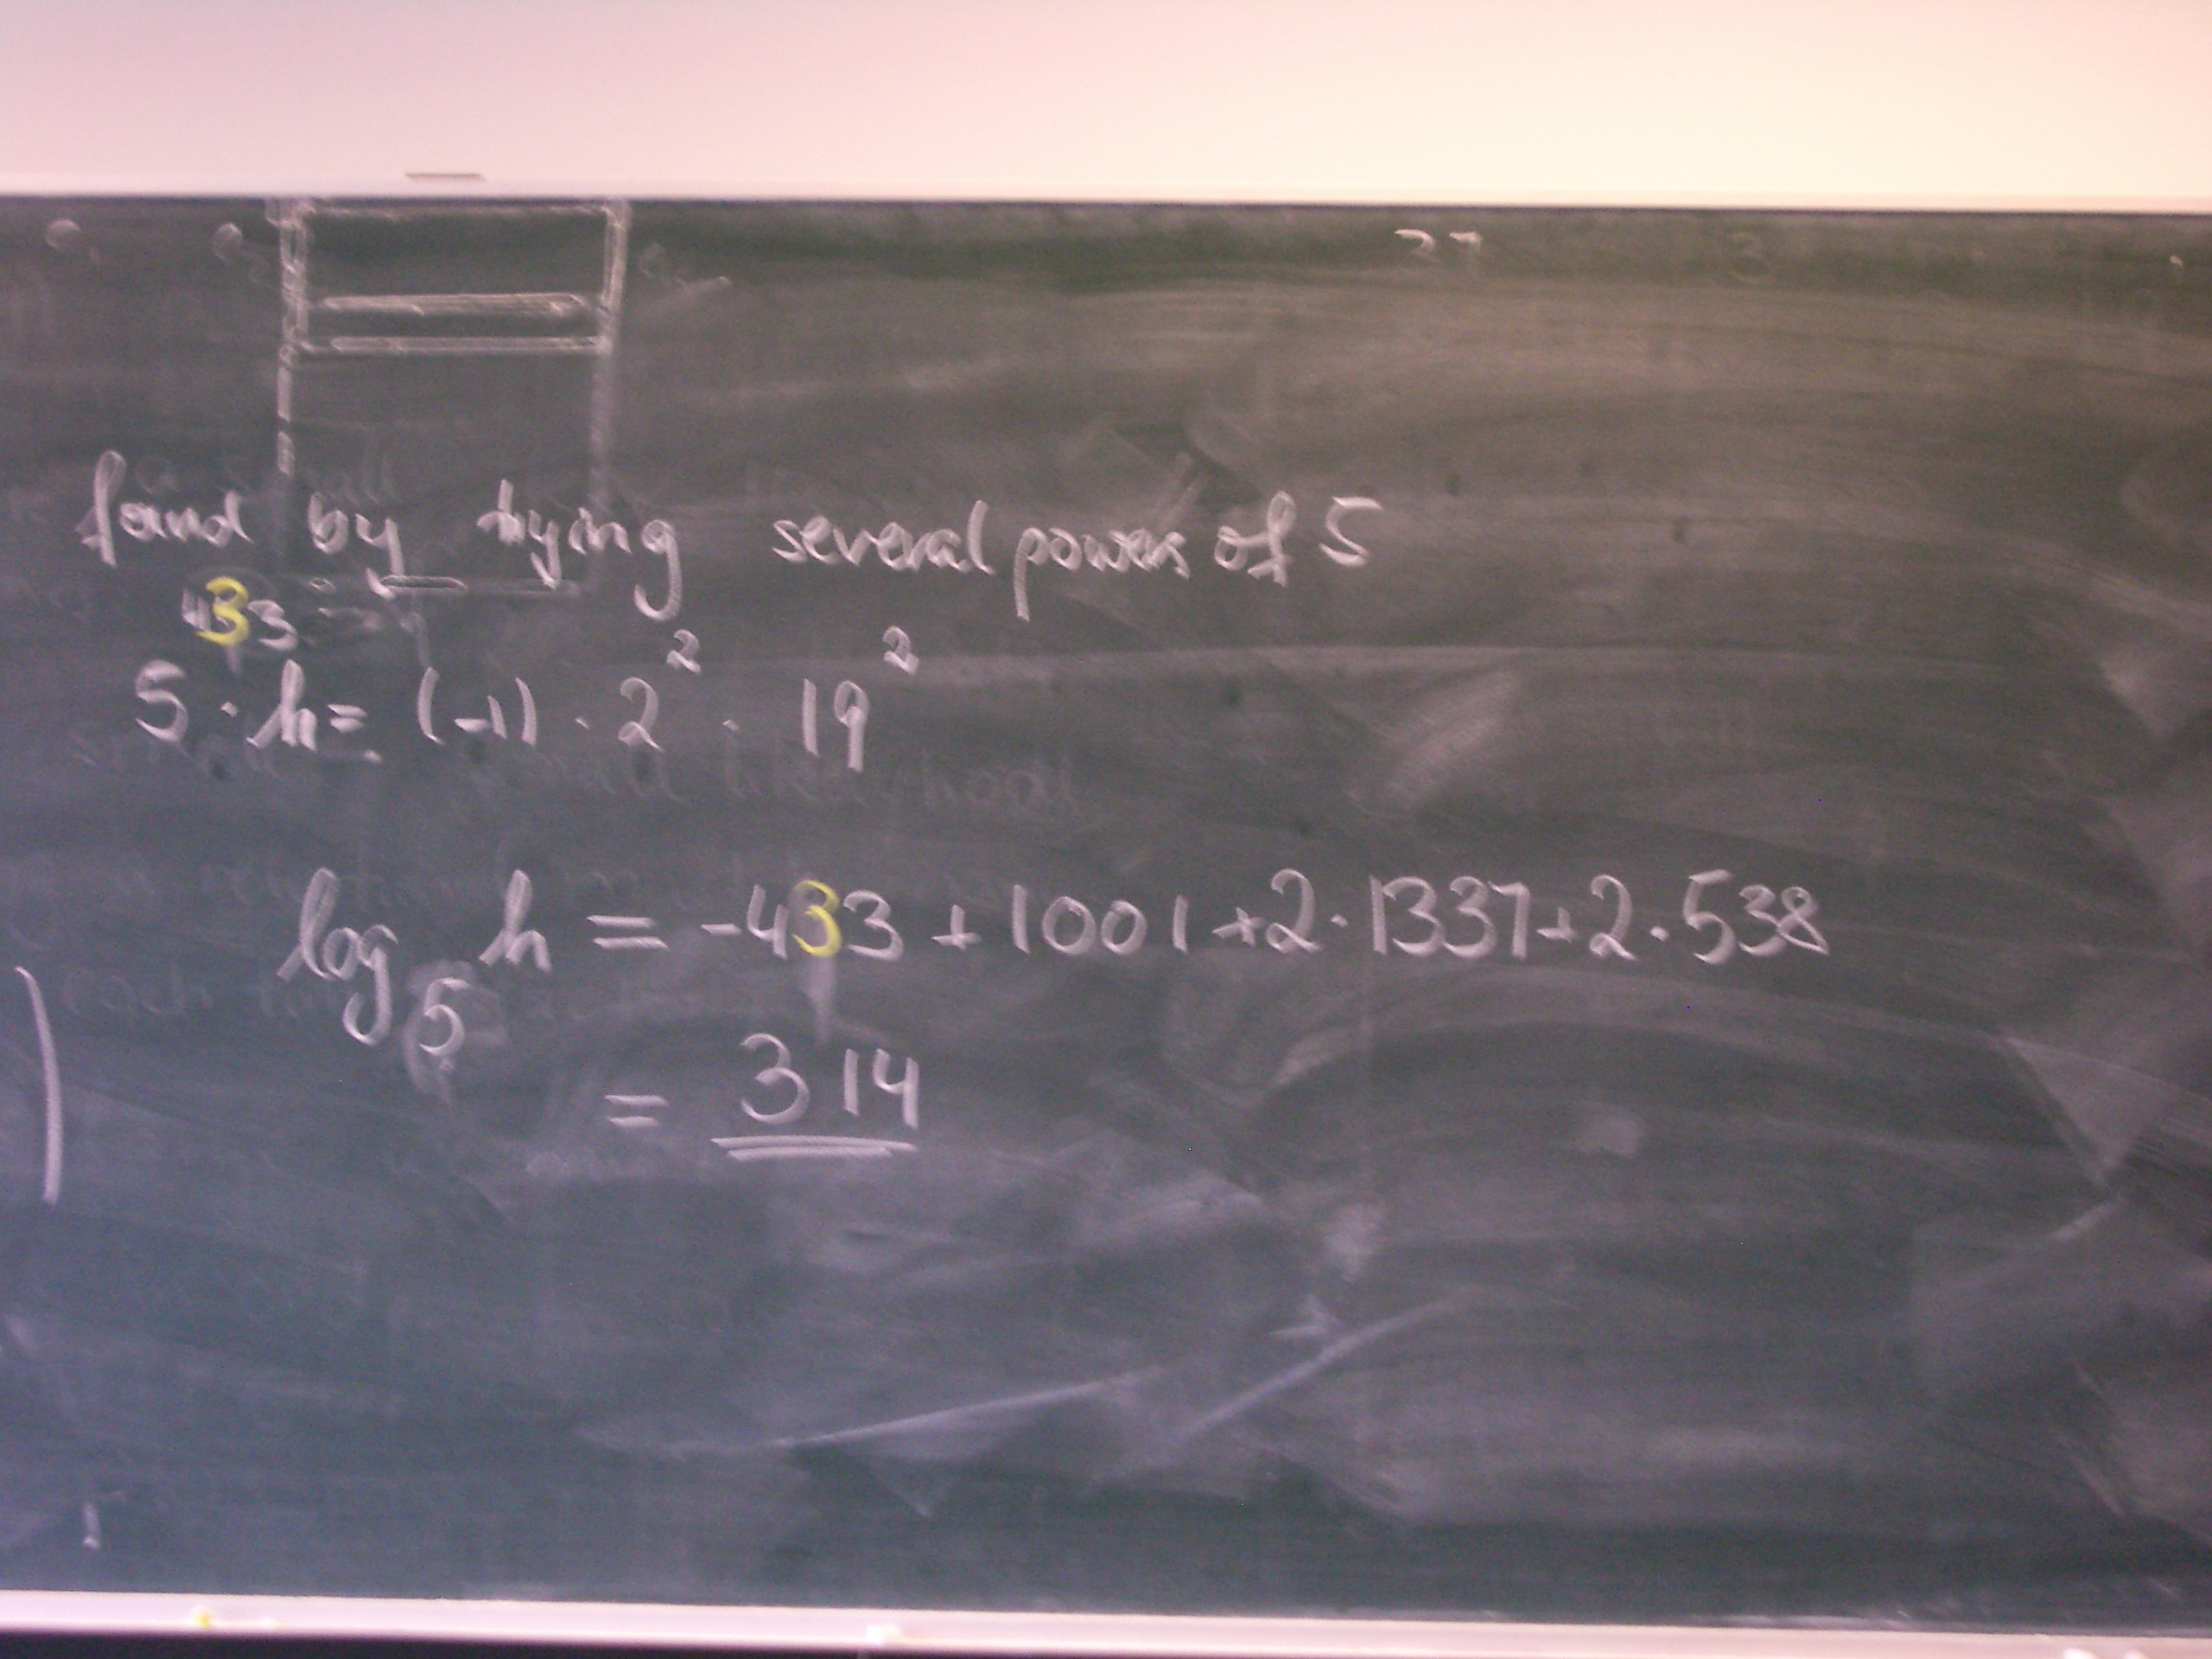 found by trying several powers of 5
5⁴³³ · h = (-1) · 2² · 19²
log₅ h = -433 + 1001 + 2 · 1337 + 2 · 538
= 314